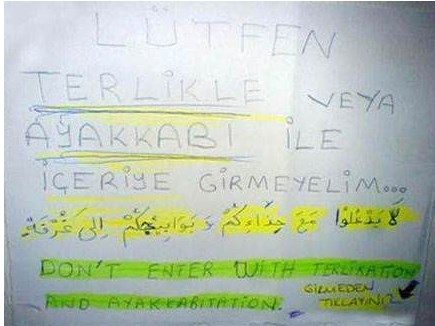 LÜTFEN
TERLİKLE VEYA
AYAKKABI İLE
İÇERİYE GİRMEYELİM...
لا يدخلوا مع حذاءكم و بوابيجكم إلى غرفة
DON'T ENTER WITH TERLIKATION
AND AYAKKABITATION.
GİRMEDEN
TIKLATINIZ